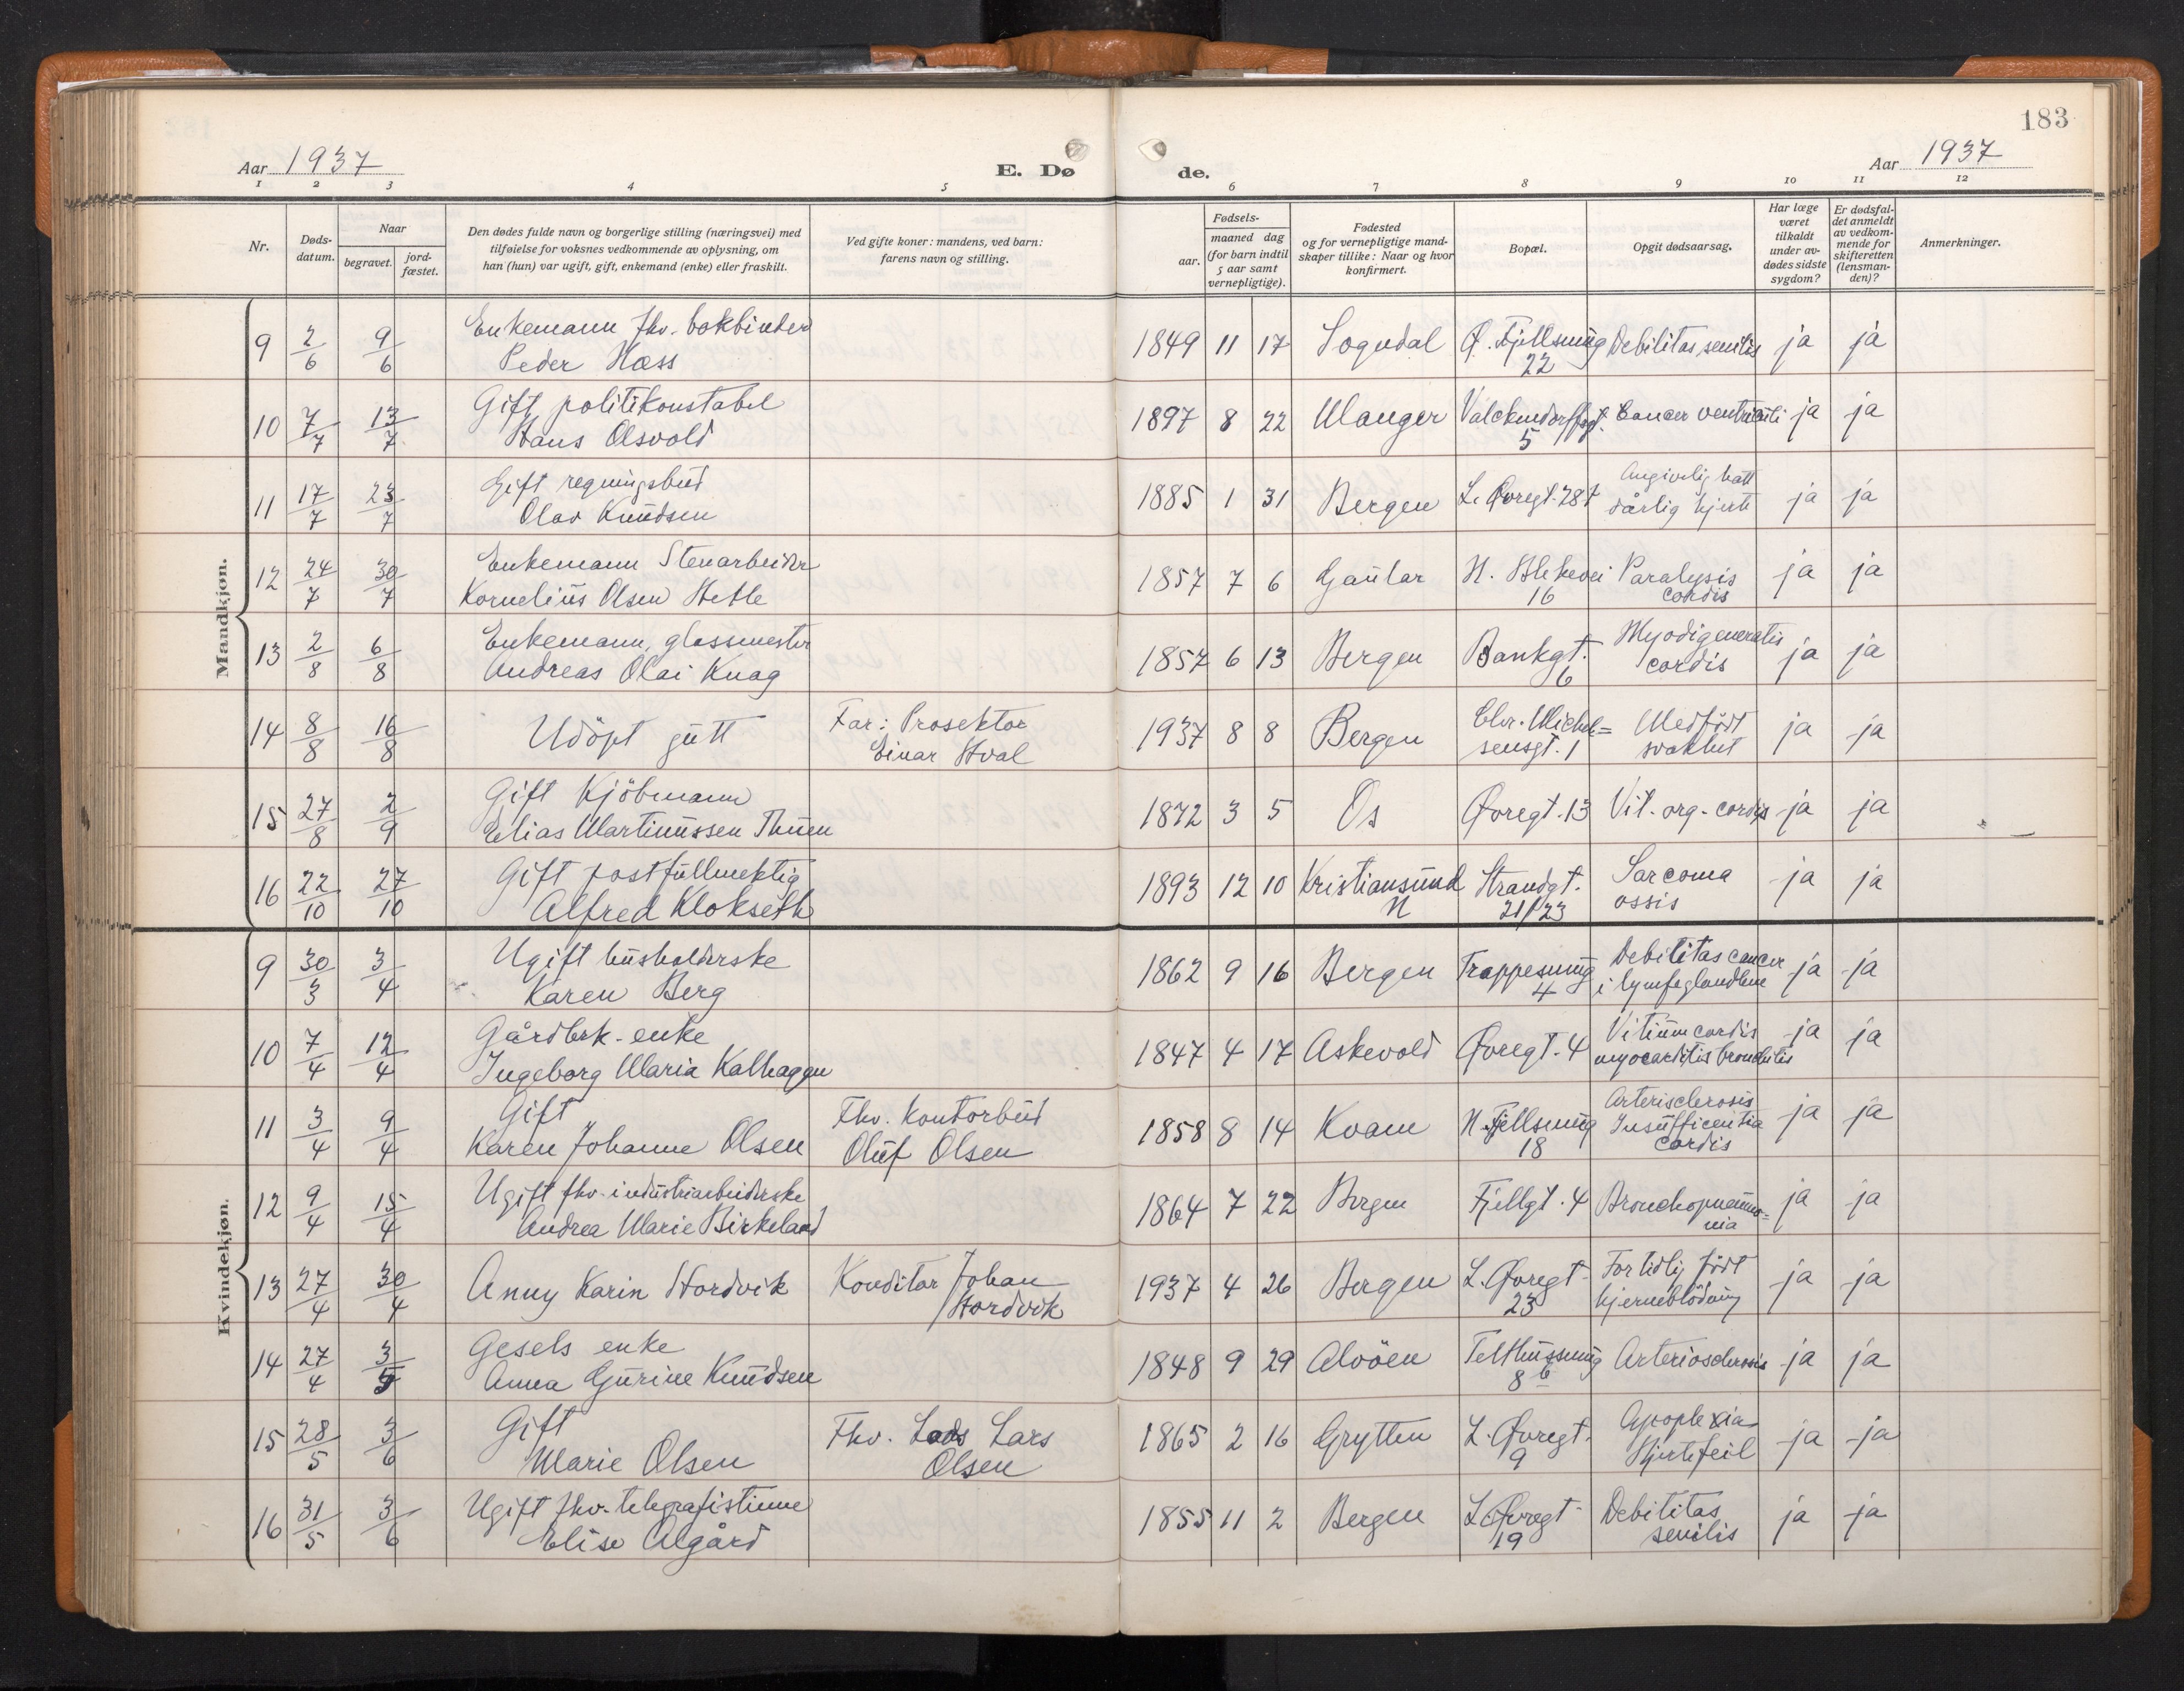 183
Aar 1937
E. Dø
de.
Aar 1937
1 2 3 4 5 6 7 8 9 10 11 12
Nr.
Døds-
datum.
Naar
begravet.
jord-
fæstet.
Den dødes fulde navn og borgerlige stilling (næringsvei) med
tilføielse for voksnes vedkommende av oplysning, om
han (hun) var ugift, gift, enkemand (enke) eller fraskilt.
Ved gifte koner: mandens, ved barn:
farens navn og stilling.
Fødsels-
aar.
maaned dag
(for barn indtil
5 aar samt
vernepligtige).
Fødested
og for vernepligtige mand-
skaper tillike: Naar og hvor
konfirmert.
Bopæl.
Opgit dødsaarsag.
Har læge
været
tilkaldt
under av-
dødes sidste
sygdom?
Er dødsfal-
det anmeldt
av vedkom-
mende for
skifteretten
(lensman-
den)?
Anmerkninger.
Mandkjøn.
9 2/6 9/6 Enkemann fhv. bokbinder
Peder Hass
1849 11 17 Sogndal Ø. Fjellsmug
22
Debilitas senilis ja ja
10 7/7 13/7 Gift politikonstabel
Hans Olsvold
1897 8 22 Manger Valckendorffsgt.
5
Cancer ventriculi ja ja
11 17/7 23/7 Gift regningsbud
Olav Knudsen
1885 1 31 Bergen L. Øvregt. 28
Angivelig hatt
dårlig hjerte
ja ja
12 24/7 30/7 Enkemann Stenarbeider
Kornelius Olsen Hetle
1857 7 6 Gaular N. Blekevei
16
Paralysis
cordis
ja ja
13 2/8 6/8 Enkemann, glassmester
Andreas Olai Knag
1857 6 13 Bergen Bankgt.
6
Myodigeneratis
cordis
ja ja
14 8/8 16/8 Udöpt gutt
Far: Prosektor
Einar Hval
1937 8 8 Bergen Chr. Michel=
sensgt. 1
Medfödt
svakhet
ja ja
15 27/8 2/9 Gift Kjöbmann
Elias Martinussen Thuen
1872 3 5 Os Øvregt. 13 Vit. org. cordis ja ja
16 22/10 27/10 Gift postfullmektig
Alfred Klokseth
1893 12 10 Kristiansund
N
Strandgt.
21/23
Sarcoma
ossis
ja ja
Kvindekjøn.
9 30/3 3/4 Ugift husholderske
Karen Berg
1862 9 16 Bergen Trappesmug
4
Debilitas cancer
i lymfeglandlene
ja ja
10 7/4 12/4 Gårdbrk. enke
Ingeborg Maria Kalhagen
1847 4 17 Askevold Øvregt. 4
Vitium cordis
myocarditis bronchitis
ja ja
11 3/4 9/4 Gift
Karen Johanne Olsen
Fhv. Kontorbud
Oluf Olsen
1858 8 14 Kvam N. Fjellsmug
18
Arterisclerosis
Insufficientia
cordis
ja ja
12 9/4 15/4 Ugift fhv. industriarbeiderske
Andrea Marie Birkeland
1864 7 22 Bergen Fjellgt. 4 Bronchopneumo=
nia
ja ja
13 27/4 30/4 Anny Karin Hordvik
Konditor Johan
Hordvik
1937 4 26 Bergen L. Øvregt.
23
For tidlig födt
hjerneblödning
ja ja
14 27/4 3/5 Gesels enke
Anna Gurine Knudsen
1848 9 29 Alvöen Telthussmug
8 b
Arteriosclerosis ja ja
15 28/5 3/6 Gift
Marie Olsen
Fhv. Lods Lars
Olsen
1865 2 16 Grytten L. Øvregt.
9
Apoplexia
Hjertefeil
ja ja
16 31/5 3/6 Ugift fhv. telegrafistinne
Elise Algård
1855 11 2 Bergen L. Øvregt
19
Debilitas
senilis
ja ja